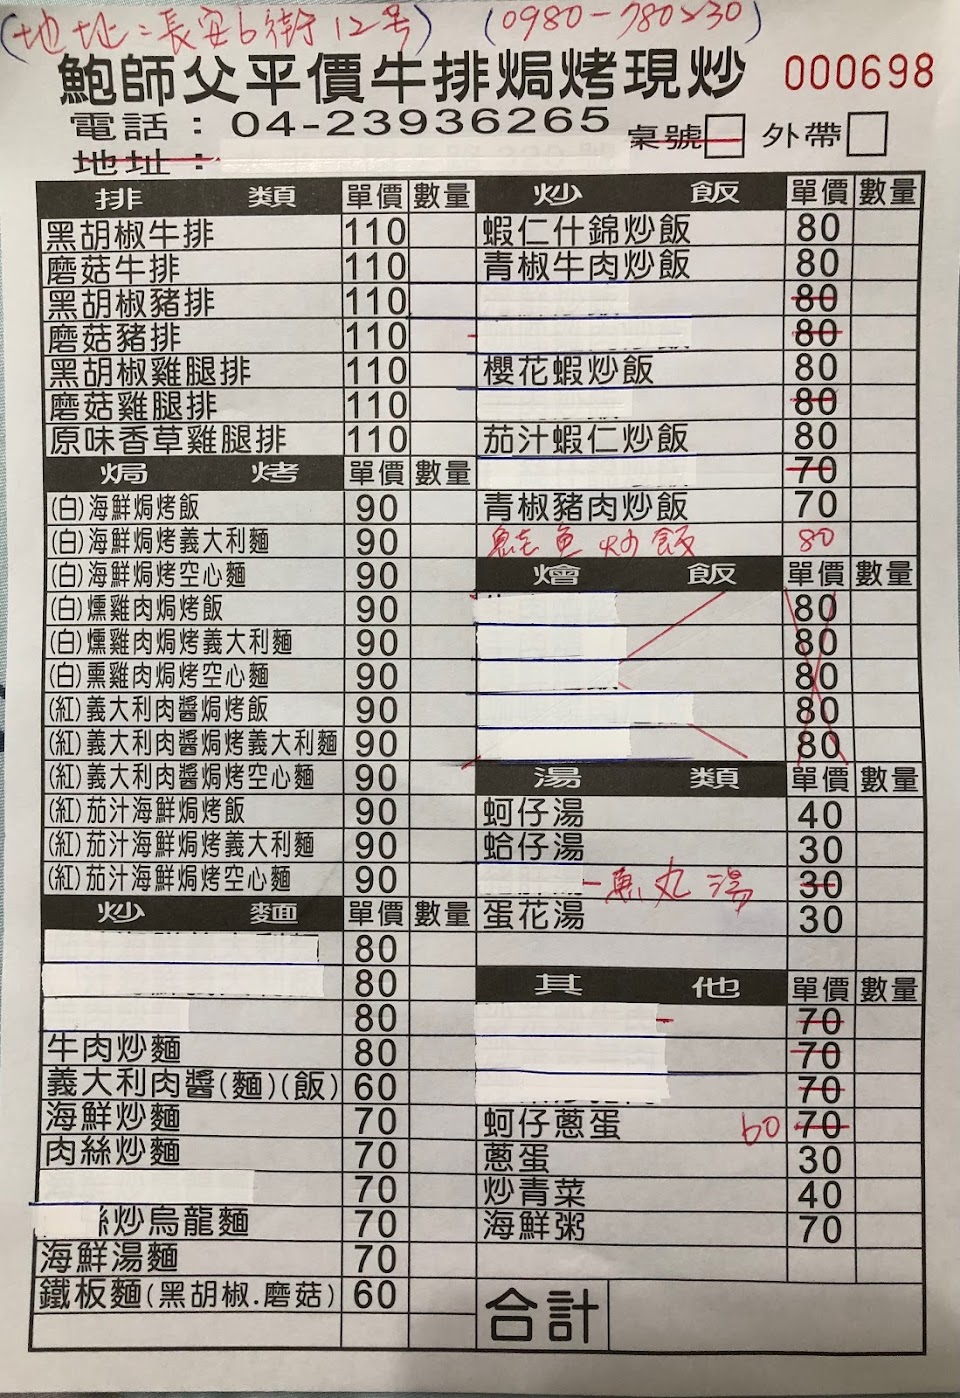 (地址:長安6街12号) (0980-780230)
鮑師父平價牛排焗烤現炒 000698
電話：04-23936265 桌號 外帶
地址：
排類 單價 數量
黑胡椒牛排 110
磨菇牛排 110
黑胡椒豬排 110
磨菇豬排 110
黑胡椒雞腿排 110
磨菇雞腿排 110
原味香草雞腿排 110
焗烤 單價 數量
(白)海鮮焗烤飯 90
(白)海鮮焗烤義大利麵 90
(白)海鮮焗烤空心麵 90
(白)燻雞肉焗烤飯 90
(白)燻雞肉焗烤義大利麵 90
(白)熏雞肉焗烤空心麵 90
(紅)義大利肉醬焗烤飯 90
(紅)義大利肉醬焗烤義大利麵 90
(紅)義大利肉醬焗烤空心麵 90
(紅)茄汁海鮮焗烤飯 90
(紅)茄汁海鮮焗烤義大利麵 90
(紅)茄汁海鮮焗烤空心麵 90
炒麵 單價 數量
80
80
80
牛肉炒麵 80
義大利肉醬(麵)(飯) 60
海鮮炒麵 70
肉絲炒麵 70
70
絲炒烏龍麵 70
海鮮湯麵 70
鐵板麵(黑胡椒.磨菇) 60
炒飯 單價 數量
蝦仁什錦炒飯 80
青椒牛肉炒飯 80
80
80
櫻花蝦炒飯 80
80
茄汁蝦仁炒飯 80
70
青椒豬肉炒飯 70
魚炒飯 80
燴飯 單價 數量
80
80
80
80
80
湯類 單價 數量
蚵仔湯 40
蛤仔湯 30
魚丸湯 30
蛋花湯 30
其他 單價 數量
70
70
70
蚵仔蔥蛋 60 70
蔥蛋 30
炒青菜 40
海鮮粥 70
合計